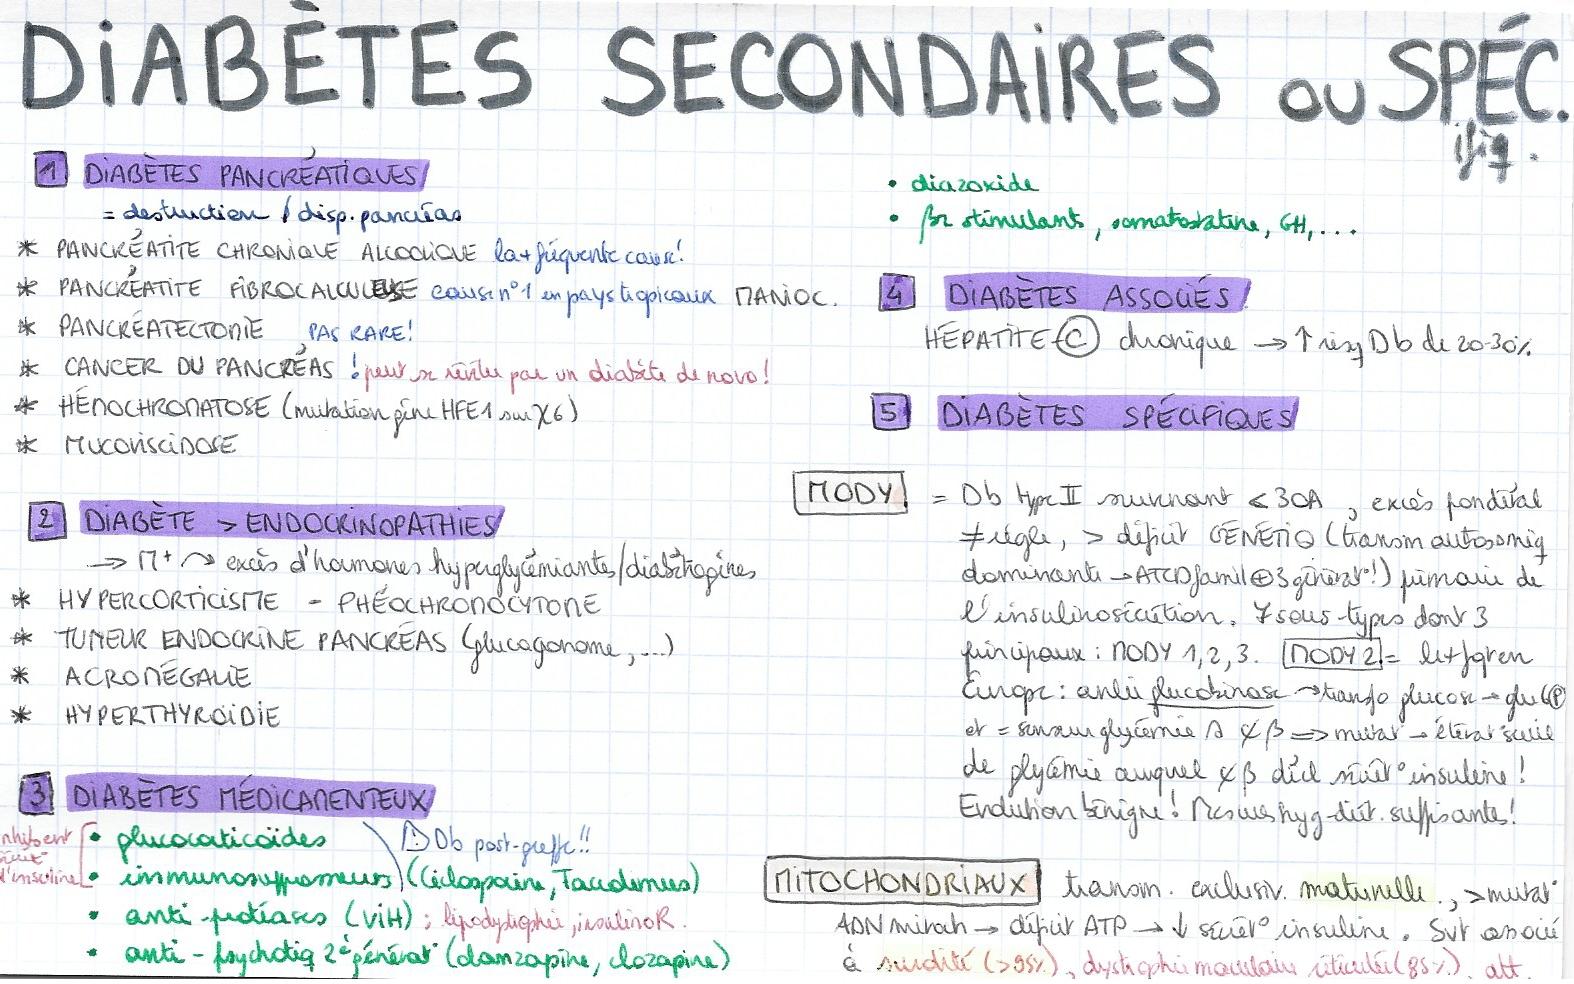 DIABÈTES SECONDAIRES ou SPÉC.
ifiq.
1 DIABÈTES PANCRÉATIQUES
= destruction / disp. pancréas
* PANCRÉATITE CHRONIQUE ALCOOLIQUE la + fréquente cause!
* PANCRÉATITE FIBROCALCULEUSE cause n°1 en pays tropicaux MANIOC.
* PANCRÉATECTOMIE PAS RARE!
* CANCER DU PANCRÉAS ! peut se révéler par un diabète de novo!
* HÉMOCHROMATOSE (mutation gène HFE1 sur X6)
* MUCOVISCIDOSE
2 DIABÈTE > ENDOCRINOPATHIES
→ M+ excès d'hormones hyperglycémiantes/diabétogènes
* HYPERCORTICISME - PHÉOCHROMOCYTOME
* TUMEUR ENDOCRINE PANCRÉAS (glucagonome, ...)
* ACROMÉGALIE
* HYPERTHYROÏDIE
3 DIABÈTES MÉDICAMENTEUX
nhibent
sécrét°
d'insuline
• glucocorticoïdes ⚠ Db post-greffe!!
• immunosuppresseurs (Ciclosporine, Tacrolimus)
• anti-protéases (VIH) ; lipodystrophie, insulinoR.
• anti-psychotiq 2è générat° (olanzapine, clozapine)
• diazoxide
• β2 stimulants, somatostatine, GH, ...
4 DIABÈTES ASSOCIÉS
HÉPATITE C chronique → ↑ risq Db de 20-30%
5 DIABÈTES SPÉCIFIQUES
MODY = Db type II survenant < 30A, excès pondéral
≠ règle, > déficit GÉNÉTIQ (transm autosomiq
dominante → ATCD famil ⊕ 3 générat°!) primaire de
l'insulinosécrétion. 7 sous-types dont 3
principaux : MODY 1, 2, 3. MODY 2 = le + fq en
Europe : glucokinase → transfo glucose → glu 6 P
et = senseur glycémie β => mutat → seuil
de glycémie auquel β décl sécrét° insuline!
Evolution bénigne! Mesures hyg-diét. suffisantes!
MITOCHONDRIAUX transm. exclusiv. maternelle, > mutat°
ADN mitoch → déficit ATP → ↓ sécrét° insuline. Svt associé
à surdité (>95%), dystrophie maculaire réticulée (85%), att.